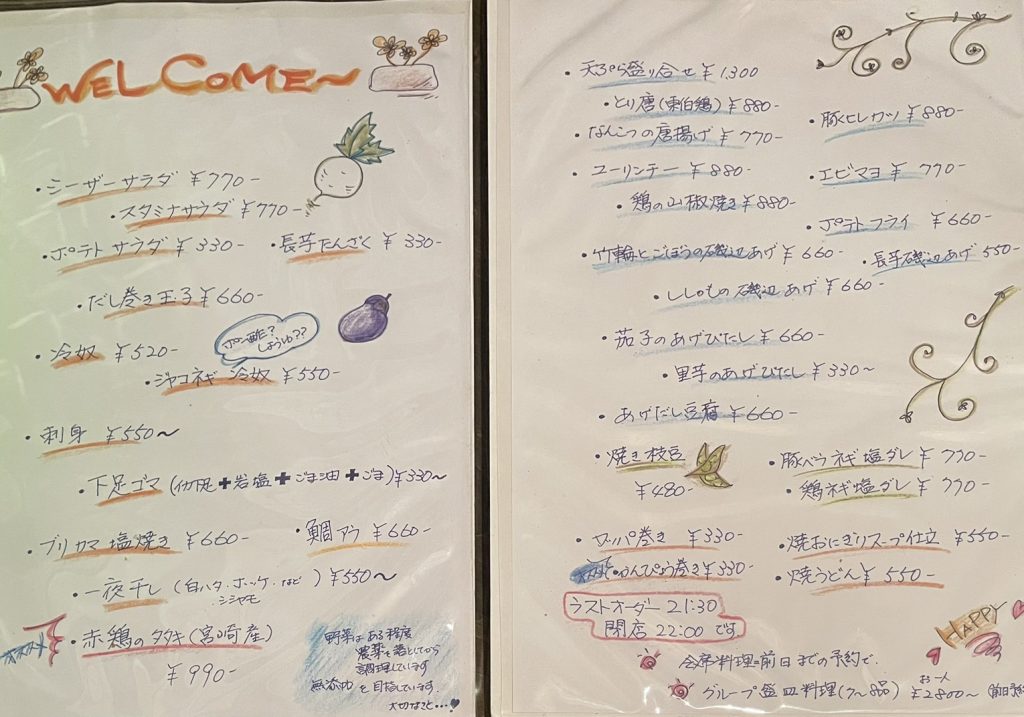 WELCOME～
・シーザーサラダ ¥770-
・スタミナサラダ ¥770-
・ポテトサラダ ¥330-
・長芋たんざく ¥330-
・だし巻き玉子 ¥660-
ポン酢?
しょうゆ??
・冷奴 ¥520-
・ジャコネギ 冷奴 ¥550-
・刺身 ¥550～
・下足ゴマ (イカ下足+岩塩+ごま油+ごま) ¥330～
・ブリカマ塩焼き ¥660-
・鯛アラ ¥660-
・一夜干し (白ハタ、ホッケ、など) ¥550～
シシャモ
オススメ
・赤鶏のタタキ (宮崎産)
¥990-
野菜はある程度
農薬を落としてから
調理しています
無添加を目指しています。
大切なこと…
・天ぷら盛り合せ ¥1,300
・とり唐 (東伯鶏) ¥880-
・なんこつの唐揚げ ¥770-
・豚ヒレカツ ¥880-
・ユーリンチー ¥880-
・エビマヨ ¥770-
・鶏の山椒焼き ¥880-
・ポテトフライ ¥660-
・竹輪とごぼうの磯辺あげ ¥660-
・長芋磯辺あげ 550-
・ししゃもの磯辺あげ ¥660-
・茄子のあげびたし ¥660-
・里芋のあげびたし ¥330～
・あげだし豆腐 ¥660-
・焼き枝豆
¥480-
・豚バラネギ塩ダレ ¥770-
・鶏ネギ塩ダレ ¥770-
・カッパ巻き ¥330-
・焼おにぎりスープ仕立 ¥550-
・かんぴょう巻き ¥330-
・焼うどん ¥550-
ラストオーダー 21:30
閉店 22:00 です。
HAPPY
会席料理=前日までの予約で、
お一人
グループ盛皿料理 (7～8品) ¥2800～ 前日予約